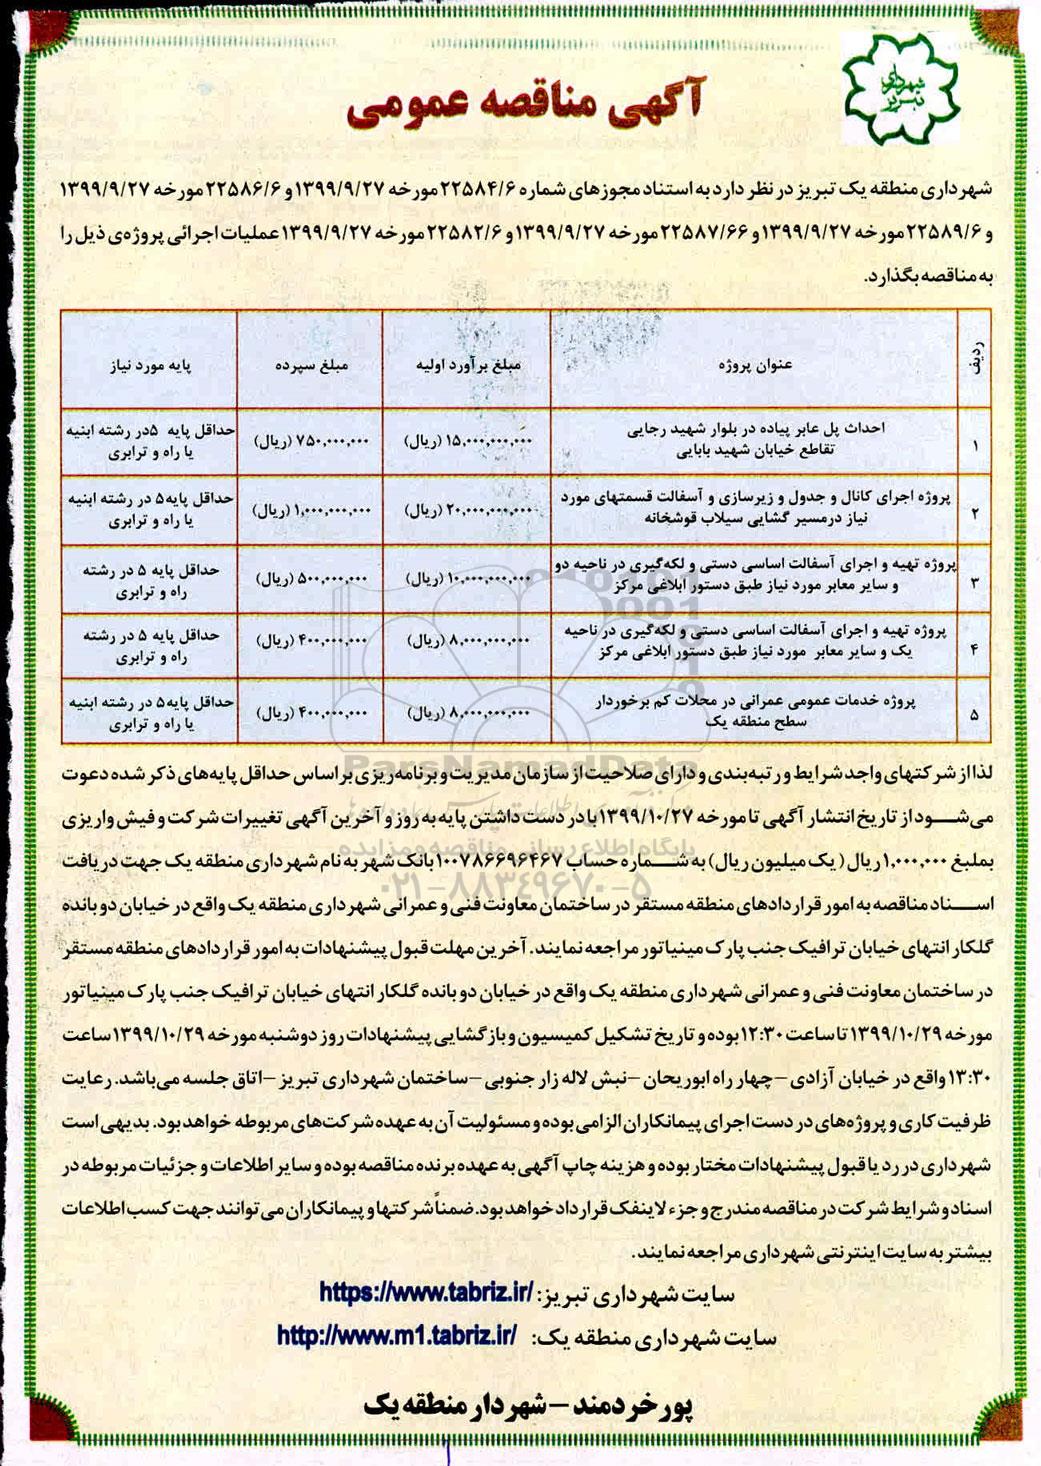 شهرداری
تبریز
آگهی مناقصه عمومی
شهرداری منطقه یک تبریز در نظر دارد به استناد مجوزهای شماره ۲۲۵۸۴/۶ مورخه ۱۳۹۹/۹/۲۷ و ۲۲۵۸۶/۶ مورخه ۱۳۹۹/۹/۲۷
و ۲۲۵۸۹/۶ مورخه ۱۳۹۹/۹/۲۷ و ۲۲۵۸۷/۶۶ مورخه ۱۳۹۹/۹/۲۷ و ۲۲۵۸۲/۶ مورخه ۱۳۹۹/۹/۲۷ عملیات اجرائی پروژه‌ی ذیل را
به مناقصه بگذارد.
ردیف عنوان پروژه مبلغ برآورد اولیه مبلغ سپرده پایه مورد نیاز
۱ احداث پل عابر پیاده در بلوار شهید رجایی ۱۵,۰۰۰,۰۰۰,۰۰۰ (ریال) ۷۵۰,۰۰۰,۰۰۰ (ریال) حداقل پایه ۵در رشته ابنیه
تقاطع خیابان شهید بابایی یا راه و ترابری
۲ پروژه اجرای کانال و جدول و زیرسازی و آسفالت قسمتهای مورد ۲۰,۰۰۰,۰۰۰,۰۰۰ (ریال) ۱,۰۰۰,۰۰۰,۰۰۰ (ریال) حداقل پایه۵ در رشته ابنیه
نیاز درمسیر گشایی سیلاب قوشخانه یا راه و ترابری
۳ پروژه تهیه و اجرای آسفالت اساسی دستی و لکه‌گیری در ناحیه دو ۱۰,۰۰۰,۰۰۰,۰۰۰ (ریال) ۵۰۰,۰۰۰,۰۰۰ (ریال) حداقل پایه ۵ در رشته
و سایر معابر مورد نیاز طبق دستور ابلاغی مرکز راه و ترابری
۴ پروژه تهیه و اجرای آسفالت اساسی دستی و لکه‌گیری در ناحیه ۸,۰۰۰,۰۰۰,۰۰۰ (ریال) ۴۰۰,۰۰۰,۰۰۰ (ریال) حداقل پایه ۵ در رشته
یک و سایر معابر مورد نیاز طبق دستور ابلاغی مرکز راه و ترابری
۵ پروژه خدمات عمومی عمرانی در محلات کم برخوردار ۸,۰۰۰,۰۰۰,۰۰۰ (ریال) ۴۰۰,۰۰۰,۰۰۰ (ریال) حداقل پایه۵ در رشته ابنیه
سطح منطقه یک یا راه و ترابری
ParsNamadData
لذا از شرکتهای واجد شرایط و رتبه‌بندی و دارای صلاحیت از سازمان مدیریت و برنامه‌ریزی براساس حداقل پایه‌های ذکر شده دعوت
می‌شود از تاریخ انتشار آگهی تا مورخه ۱۳۹۹/۱۰/۲۷ با در دست داشتن پایه به روز و آخرین آگهی تغییرات شرکت و فیش واریزی
پایگاه اطلاع رسانی مناقصه و مزایده
بمبلیغ ۱,۰۰۰,۰۰۰ ریال ( یک میلیون ریال) به شماره حساب ۱۰۰۷۸۶۶۹۶۴۶۷ بانک شهر به نام شهرداری منطقه یک جهت دریافت
۰۲۱-۸۸۳۴۹۶۷۰-۵
اسناد مناقصه به امور قراردادهای منطقه مستقر در ساختمان معاونت فنی و عمرانی شهرداری منطقه یک واقع در خیابان دو بانده
گلکار انتهای خیابان ترافیک جنب پارک مینیاتور مراجعه نمایند. آخرین مهلت قبول پیشنهادات به امور قراردادهای منطقه مستقر
در ساختمان معاونت فنی و عمرانی شهرداری منطقه یک واقع در خیابان دو بانده گلکار انتهای خیابان ترافیک جنب پارک مینیاتور
مورخه ۱۳۹۹/۱۰/۲۹ تا ساعت ۱۲:۳۰ بوده و تاریخ تشکیل کمیسیون و بازگشایی پیشنهادات روز دوشنبه مورخه ۱۳۹۹/۱۰/۲۹ ساعت
۱۳:۳۰ واقع در خیابان آزادی – چهار راه ابوریحان – نبش لاله زار جنوبی – ساختمان شهرداری تبریز – اتاق جلسه می‌باشد. رعایت
ظرفیت کاری و پروژه‌های در دست اجرای پیمانکاران الزامی بوده و مسئولیت آن به عهده شرکت‌های مربوطه خواهد بود. بدیهی است
شهرداری در رد یا قبول پیشنهادات مختار بوده و هزینه چاپ آگهی به عهده برنده مناقصه بوده و سایر اطلاعات و جزئیات مربوطه در
اسناد و شرایط شرکت در مناقصه مندرج و جزء لاینفک قرارداد خواهد بود. ضمناً شرکتها و پیمانکاران می توانند جهت کسب اطلاعات
بیشتر به سایت اینترنتی شهرداری مراجعه نمایند.
سایت شهرداری تبریز: https://www.tabriz.ir/
سایت شهرداری منطقه یک: http://www.m1.tabriz.ir/
پورخردمند – شهردار منطقه یک